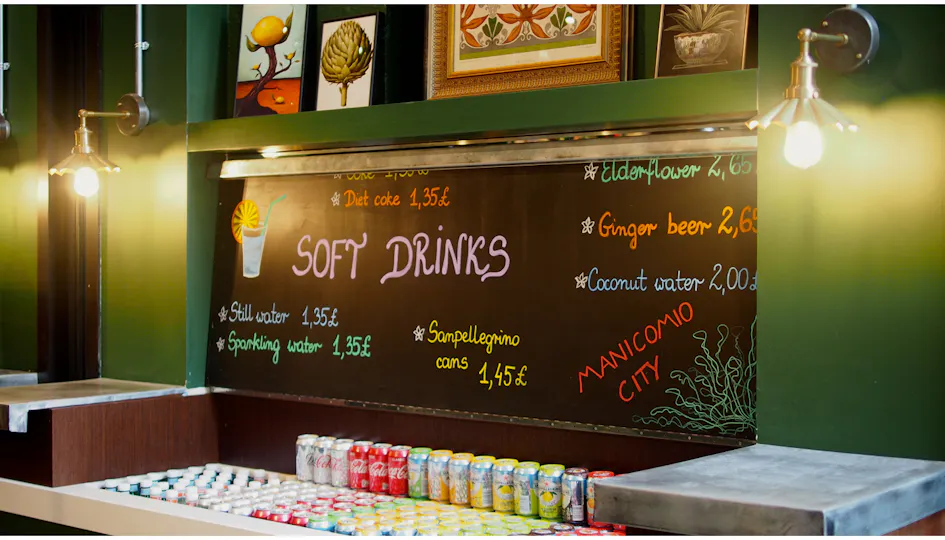 Coke 1,35£
Diet coke 1,35£
SOFT DRINKS
Still water 1,35£
Sparkling water 1,35£
Sanpellegrino
cans 1,45£
Elderflower 2,65
Ginger beer 2,65
Coconut water 2,00£
MANICOMIO
CITY
Coca-Cola
Coca-Cola